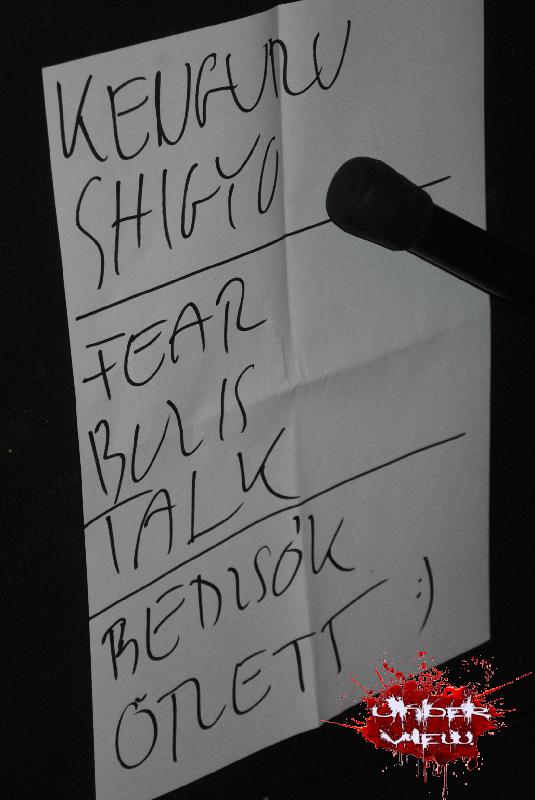 KENGURU
SHIGYO
FEAR
BULIS
TALK
BEDISÓK
ÖTLETT :)
UNDER
VIEW